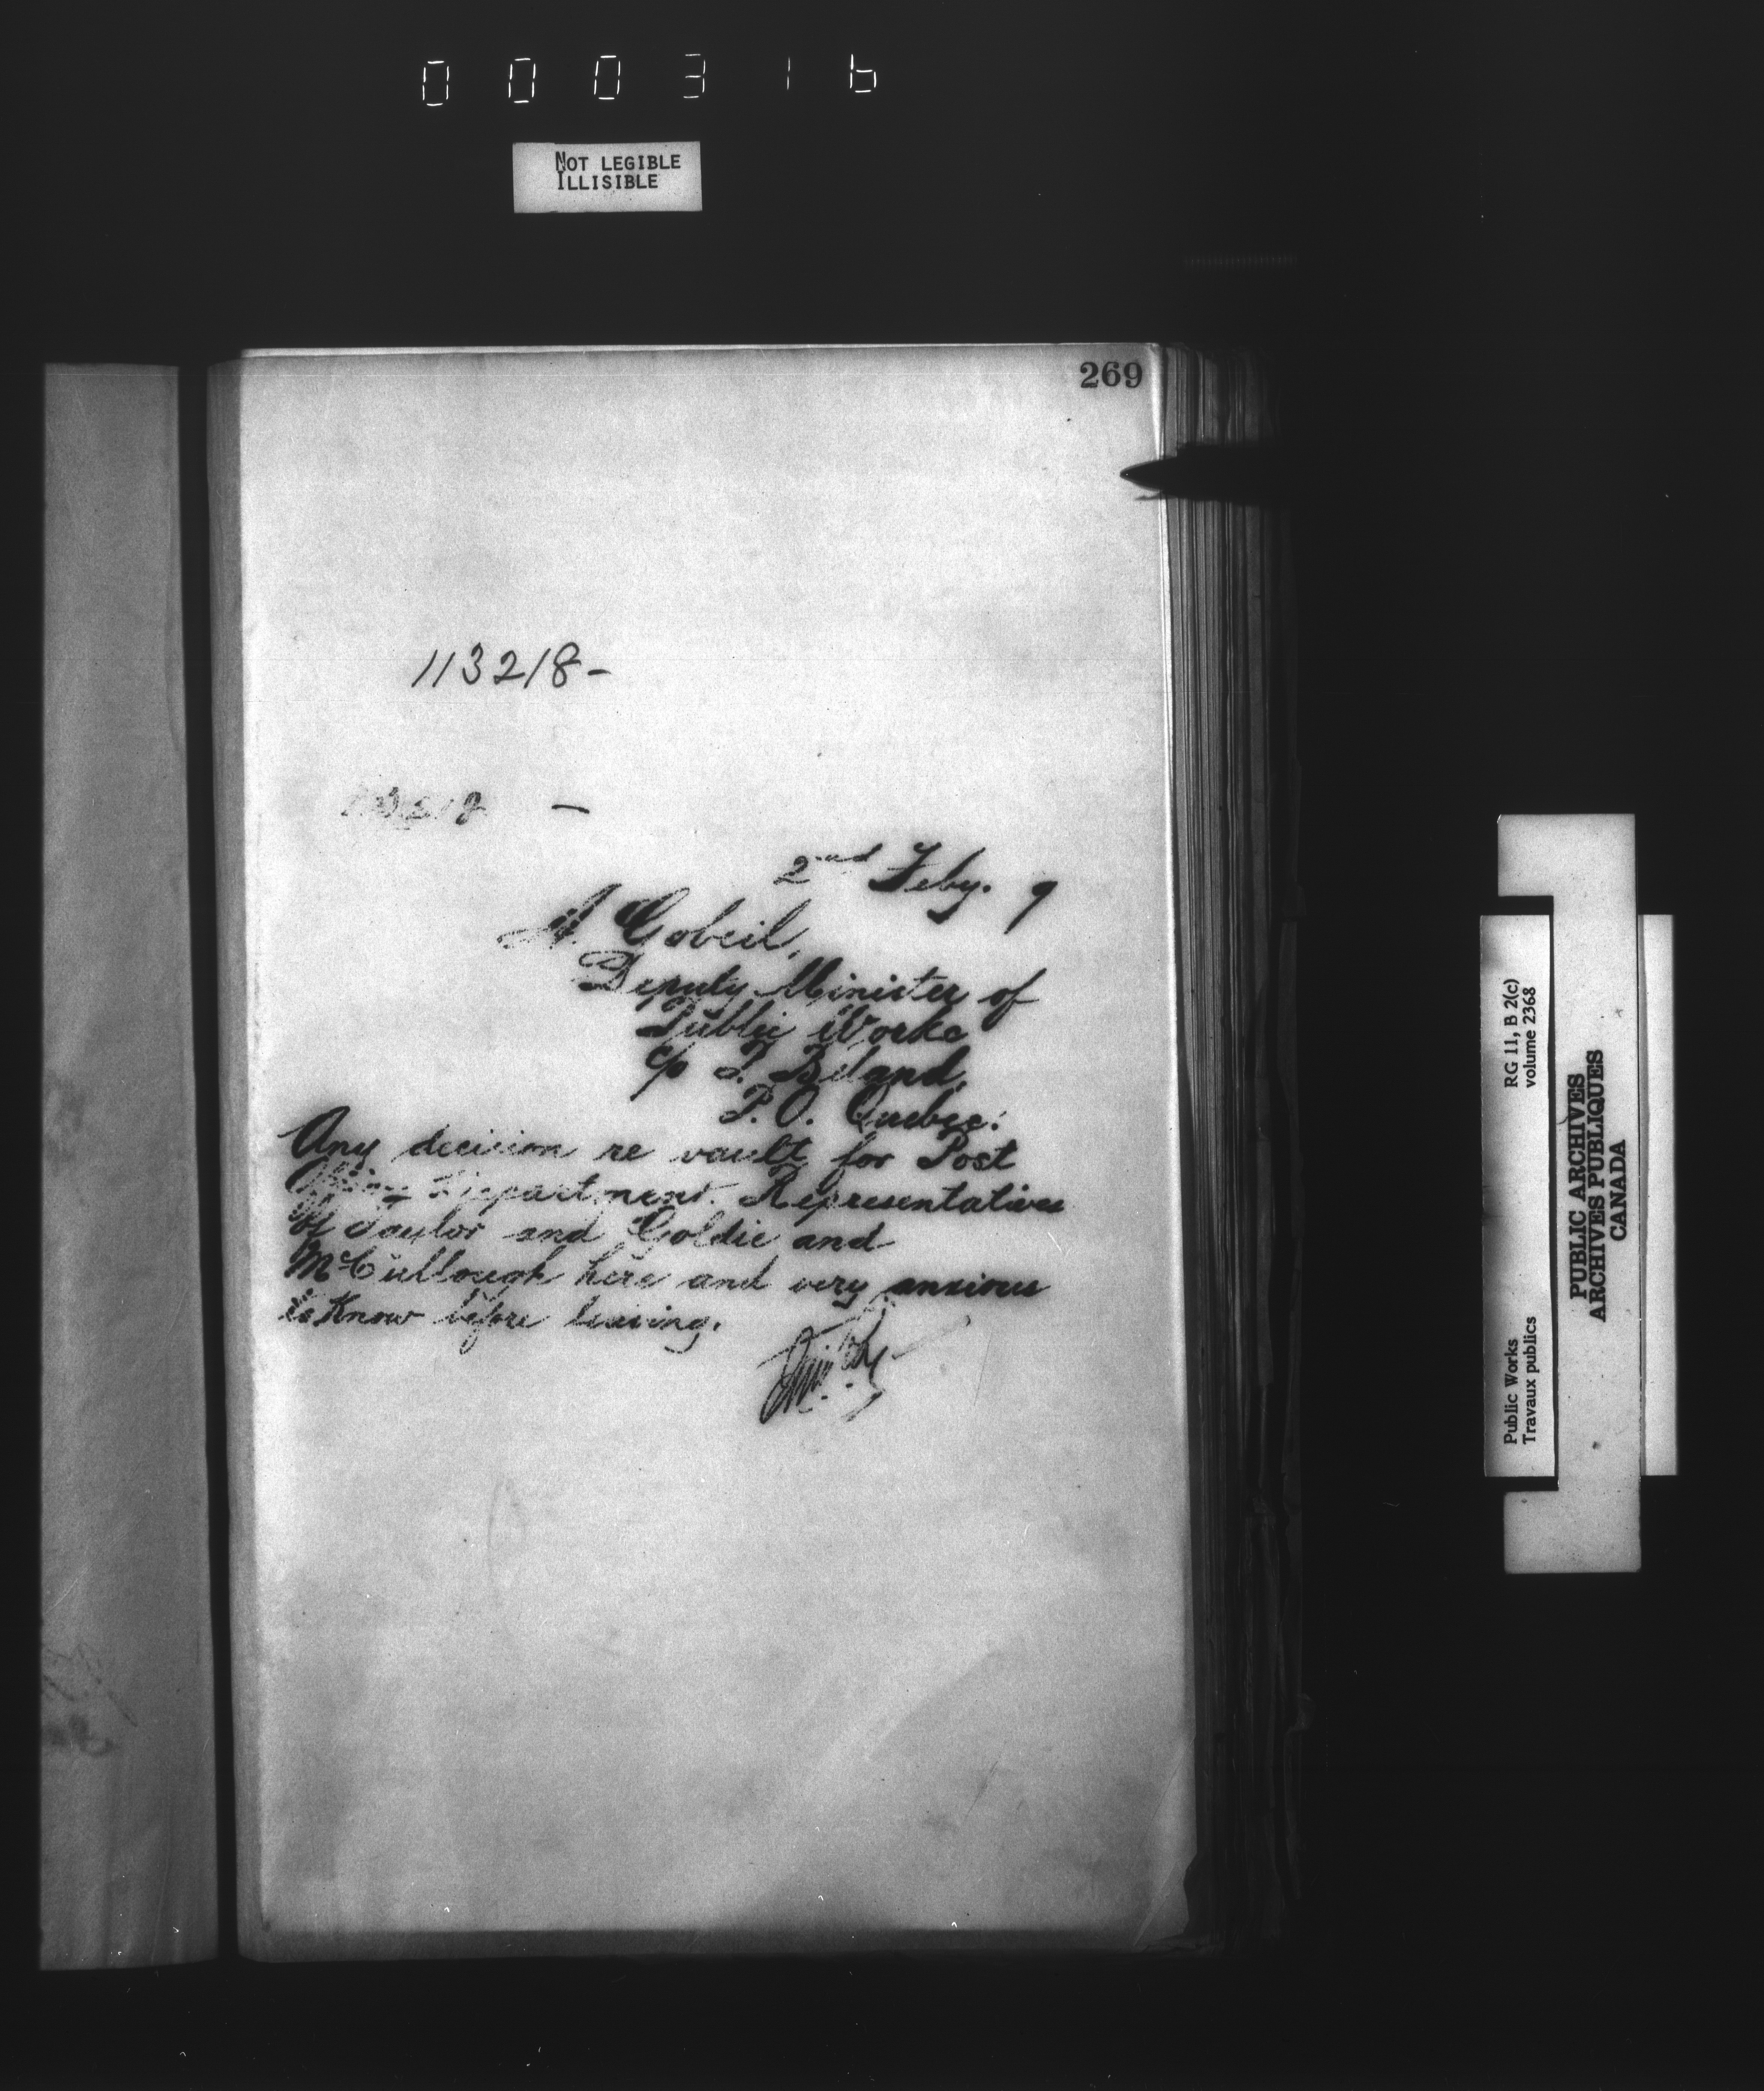 000316
NOT LEGIBLE
ILLISIBLE
269
113218-
2nd Feby. 9
A. Gobeil,
Deputy Minister of
Public Works
c/o P. Beland,
P.O. Quebec:
Any decision re vault for Post
Office Department. Representatives
of Taylor and Goldie and
McCullough here and very anxious
to know before leaving.
RG 11, B 2(c)
volume 2368
Public Works
Travaux publics
PUBLIC ARCHIVES
ARCHIVES PUBLIQUES
CANADA